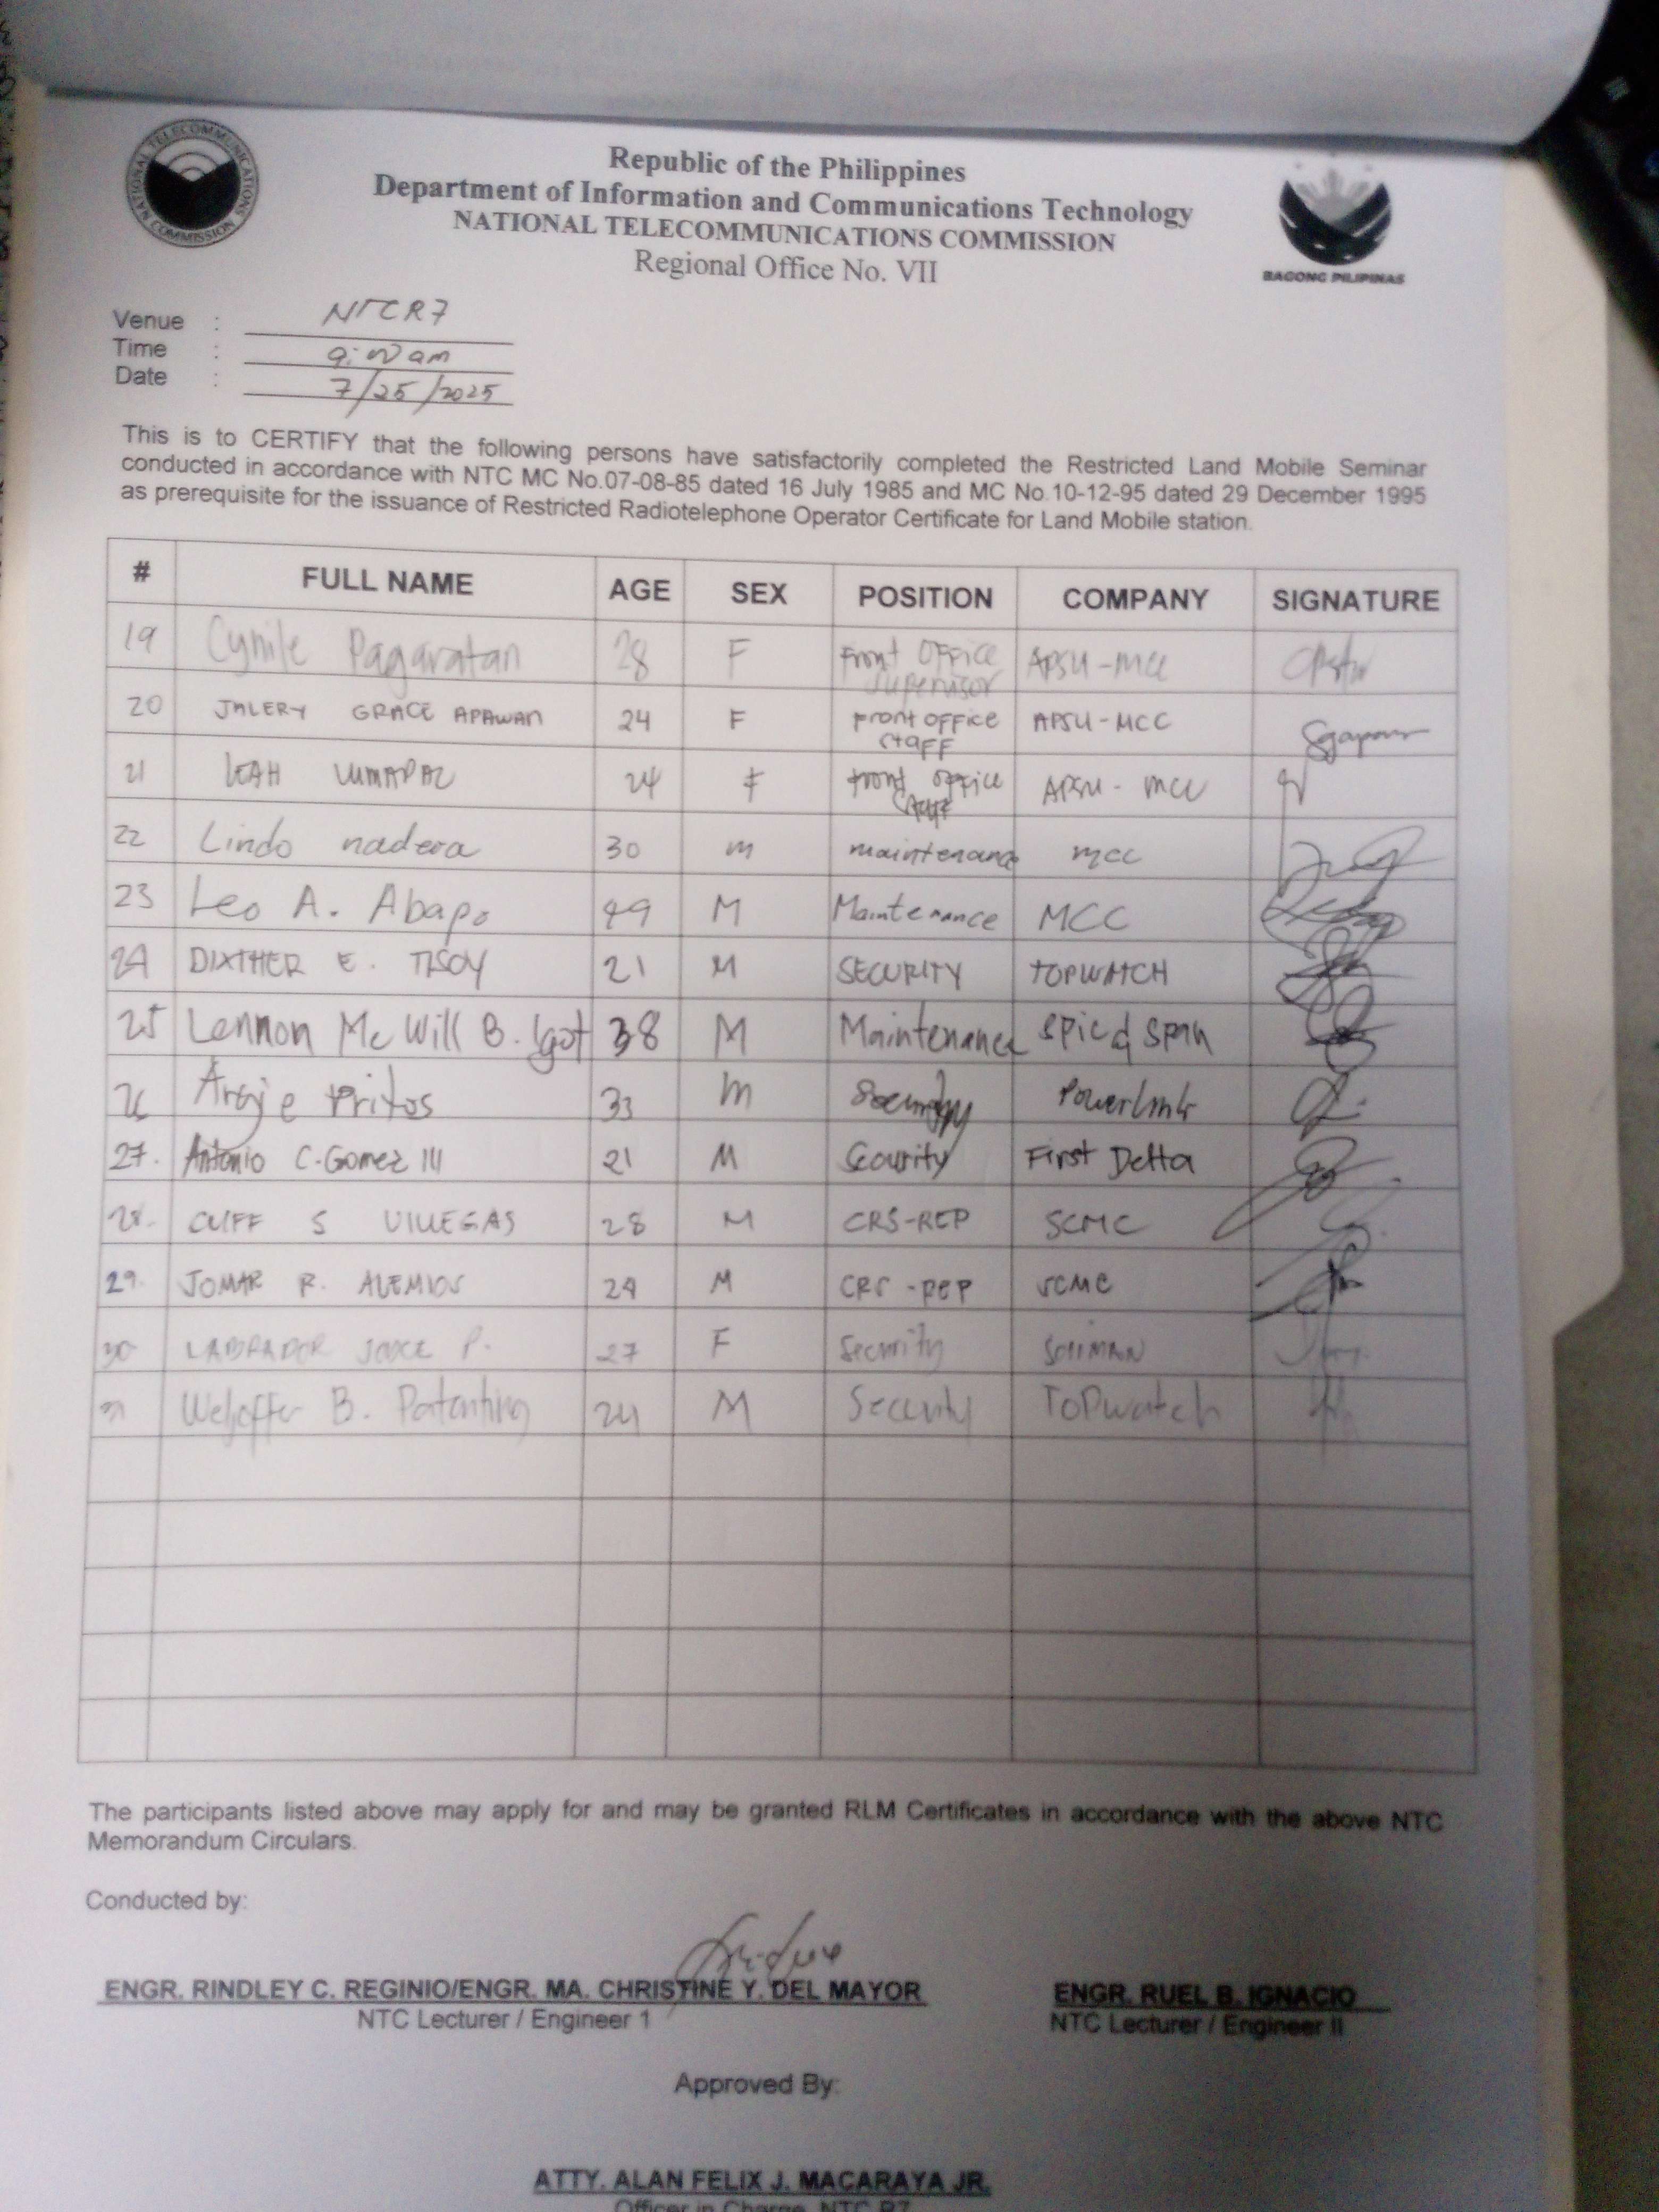 NATIONAL TELECOMMUNICATIONS COMMISSION
Republic of the Philippines
Department of Information and Communications Technology
NATIONAL TELECOMMUNICATIONS COMMISSION
Regional Office No. VII
BAGONG PILIPINAS
Venue : NTCR7
Time : 9:00 am
Date : 7/25/2025
This is to CERTIFY that the following persons have satisfactorily completed the Restricted Land Mobile Seminar
conducted in accordance with NTC MC No.07-08-85 dated 16 July 1985 and MC No.10-12-95 dated 29 December 1995
as prerequisite for the issuance of Restricted Radiotelephone Operator Certificate for Land Mobile station.
# FULL NAME AGE SEX POSITION COMPANY SIGNATURE
19 Cynile Pagaratan 28 F Front Office Supervisor APSU-MCC
20 JALERY GRACE APAWAN 24 F Front OFFICE STAFF APSU-MCC
21 LEAH LUMAPAC 24 F front office staff APSU-MCC
22 Lindo nadera 30 m maintenance mcc
23 Leo A. Abapo 49 M Maintenance MCC
24 DIXTHER E. TISOY 21 M SECURITY TOPWATCH
25 Lennon Mc Will B. Igot 38 M Maintenance Spic & Span
26 33 m Security Powerlink
27. Antonio C. Gomez III 21 M Security First Delta
28. CLIFF S VILLEGAS 28 M CRS-REP SCMC
29. JOMAR R. 29 M CRS-REP SCMC
30 LABRADOR P. 27 F Security SOLIMAN
31 B. 24 M Security TOPwatch
The participants listed above may apply for and may be granted RLM Certificates in accordance with the above NTC
Memorandum Circulars.
Conducted by:
ENGR. RINDLEY C. REGINIO/ENGR. MA. CHRISTINE Y. DEL MAYOR
NTC Lecturer / Engineer 1
ENGR. RUEL B. IGNACIO
NTC Lecturer / Engineer II
Approved By:
ATTY. ALAN FELIX J. MACARAYA JR.
Officer in Charge, NTC R7